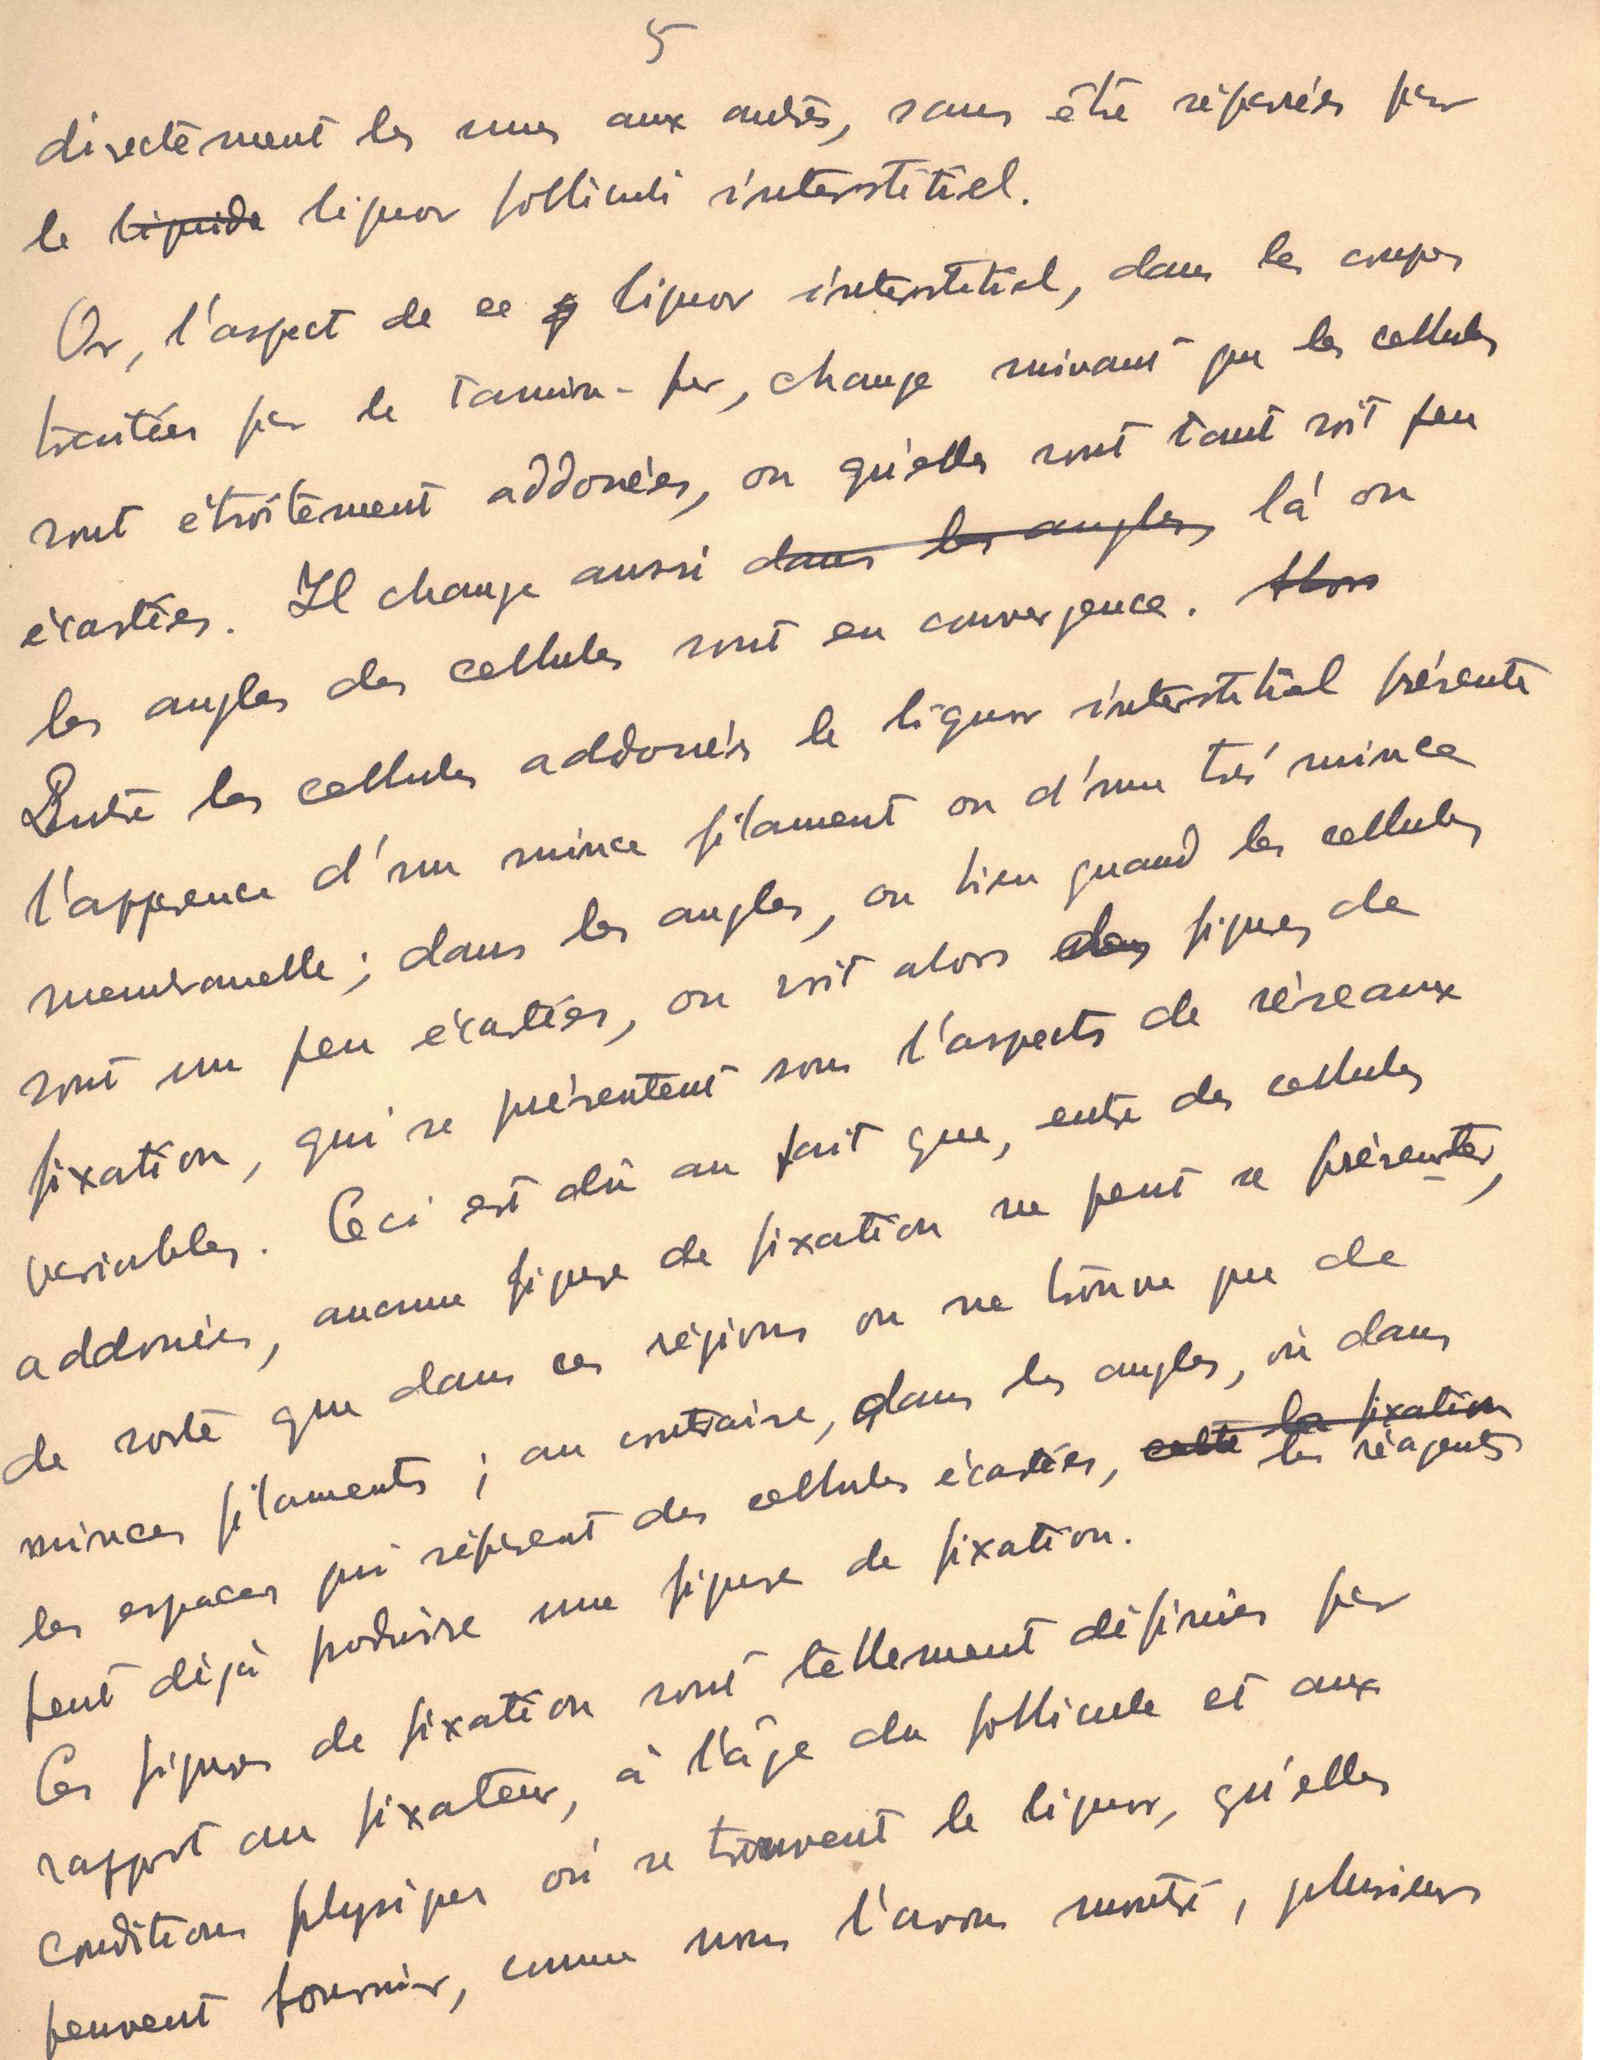 5
directement les unes aux autres, sans être séparées par
le liquide liquor folliculi interstitiel.
Or, l'aspect de ce liquor interstitiel, dans les coupes
traitées par le tannin-fer, change suivant que les cellules
sont étroitement addosées, ou qu'elles sont tant soit peu
écartées. Il change aussi dans les angles, là ou
les angles des cellules sont en convergence. Alors
Entre les cellules addosées le liquor interstitial présente
l'apparence d'un mince filament ou d'une très mince
membranelle; dans les angles, ou bien quand les cellules
sont un peu écartées, on voit alors des figures de
fixation, qui se présentent sous l'aspects de réseaux
variables. Ceci est dû au fait que, entre des cellules
addosées, aucune figure de fixation ne peut se présenter,
de sorte que dans ces régions on ne trouve que de
minces filaments; au contraire, dans les angles, où dans
les espaces qui séparent des cellules écartées, cette la fixation
les réagents
peut déjà produire une figure de fixation.
Ces figures de fixation sont tellement définies par
rapport au fixateur, à l'âge du follicule et aux
conditions physiques où se trouvent le liquor, qu'elles
peuvent fournir, comme nous l'avons montré, plusieurs